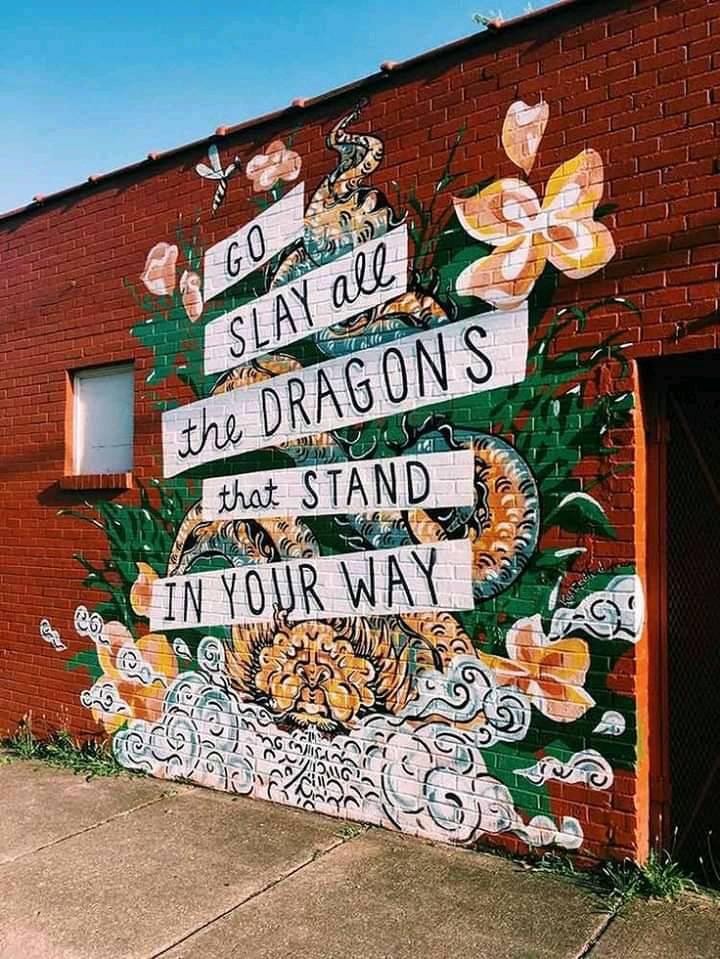 GO
SLAY all
the DRAGONS
that STAND
IN YOUR WAY